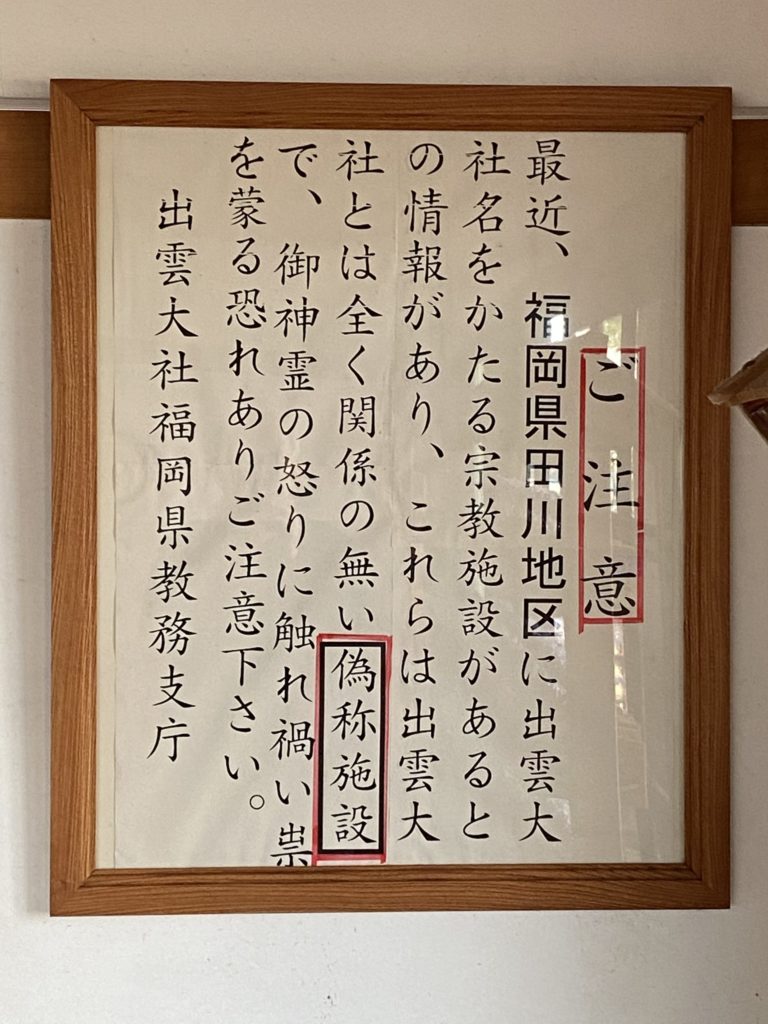 ご注意
最近、福岡県田川地区に出雲大
社名をかたる宗教施設があると
の情報があり、これらは出雲大
社とは全く関係の無い偽称施設
で、御神霊の怒りに触れ禍い祟
を蒙る恐れありご注意下さい。
出雲大社福岡県教務支庁